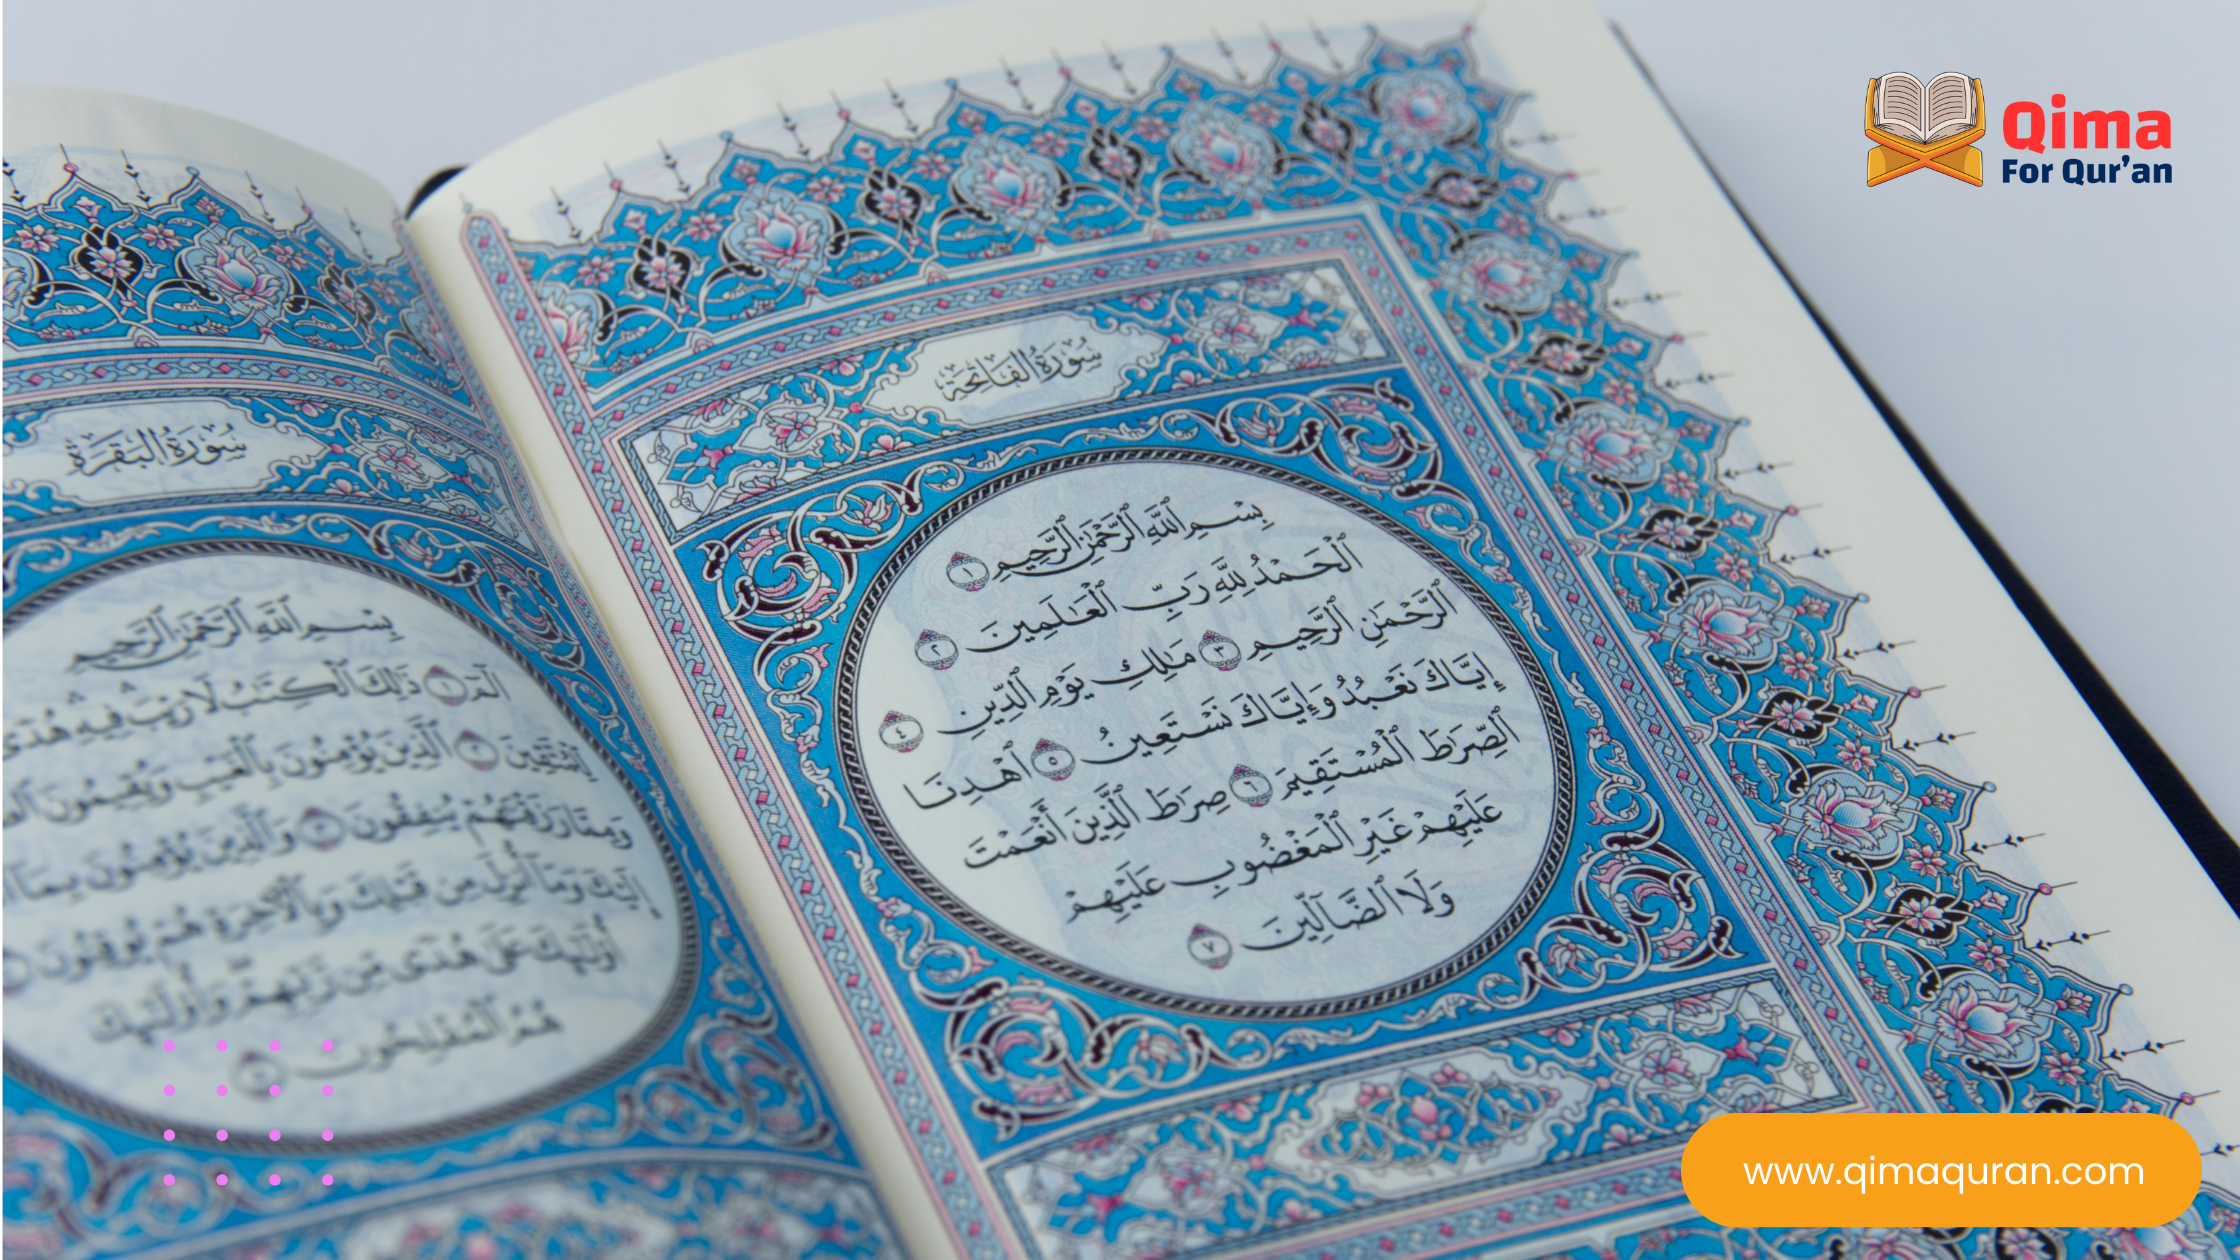 Qima
For Qur'an
سُورَةُ الْفَاتِحَةِ
بِسْمِ ٱللَّهِ ٱلرَّحْمَٰنِ ٱلرَّحِيمِ ١
ٱلْحَمْدُ لِلَّهِ رَبِّ ٱلْعَٰلَمِينَ ٢
ٱلرَّحْمَٰنِ ٱلرَّحِيمِ ٣ مَٰلِكِ يَوْمِ ٱلدِّينِ ٤
إِيَّاكَ نَعْبُدُ وَإِيَّاكَ نَسْتَعِينُ ٥ ٱهْدِنَا
ٱلصِّرَٰطَ ٱلْمُسْتَقِيمَ ٦ صِرَٰطَ ٱلَّذِينَ أَنْعَمْتَ
عَلَيْهِمْ غَيْرِ ٱلْمَغْضُوبِ عَلَيْهِمْ
وَلَا ٱلضَّآلِّينَ ٧
سُورَةُ الْبَقَرَةِ
بِسْمِ ٱللَّهِ ٱلرَّحْمَٰنِ ٱلرَّحِيمِ
الٓمٓ ١ ذَٰلِكَ ٱلْكِتَٰبُ لَا رَيْبَ ۛ فِيهِ ۛ هُدًى
لِّلْمُتَّقِينَ ٢ ٱلَّذِينَ يُؤْمِنُونَ بِٱلْغَيْبِ وَيُقِيمُونَ
وَمِمَّا رَزَقْنَٰهُمْ يُنفِقُونَ ٣ وَٱلَّذِينَ يُؤْمِنُونَ بِمَآ
إِلَيْكَ وَمَآ أُنزِلَ مِن قَبْلِكَ وَبِٱلْءَاخِرَةِ هُمْ يُوقِنُونَ
أُو۟لَٰٓئِكَ عَلَىٰ هُدًى مِّن رَّبِّهِمْ ۖ وَأُو۟لَٰٓئِكَ
هُمُ ٱلْمُفْلِحُونَ ٥
www.qimaquran.com